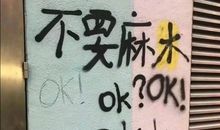 不要麻木
OK! ok? OK!